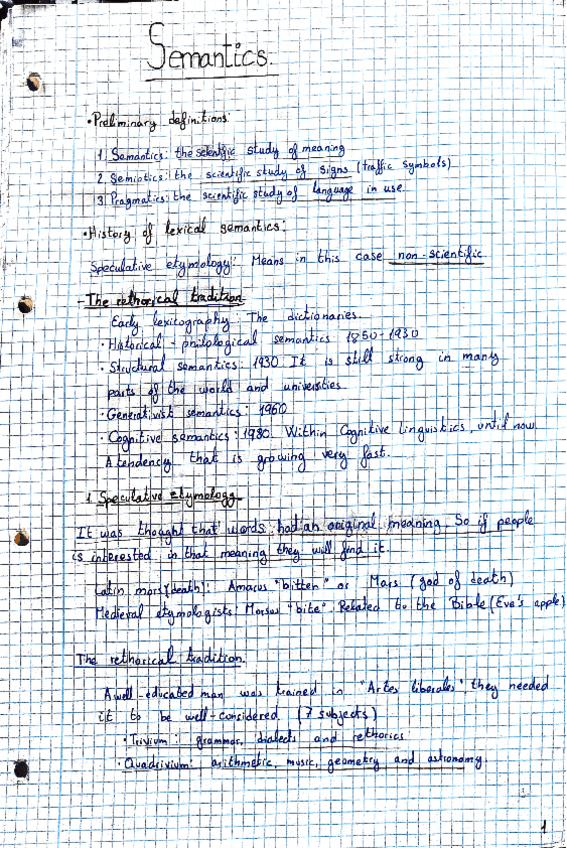 Semantics.
• Preliminary definitions:
1. Semantics: the scientific study of meaning
2. Semiotics: the scientific study of signs (traffic symbols)
3. Pragmatics: the scientific study of language in use.
• History of lexical semantics:
Speculative etymology: Means in this case non-scientific
- The rethorical tradition
Early lexicography: The dictionaries.
• Historical - philological semantics 1850-1930
• Structural semantics: 1930 It is still strong in many
parts of the world and universities
• Generativist semantics: 1960
• Cognitive semantics: 1980. Within Cognitive Linguistics, until now.
A tendency that is growing very fast.
1. Speculative etymology
It was thought that words had an original meaning. So if people
is interested in that meaning they will find it.
Latin mors (death): Amarus "bitten" or Mars (god of death)
Medieval etymologists: Morsus "bite". Related to the Bible (Eve's apple)
The rethorical tradition.
A well-educated man was trained in "Artes liberales" they needed
it to be well-considered (7 subjects)
• Trivium: grammar, dialects and rethorics
• Quadrivium: arithmetic, music, geometry and astronomy.
1